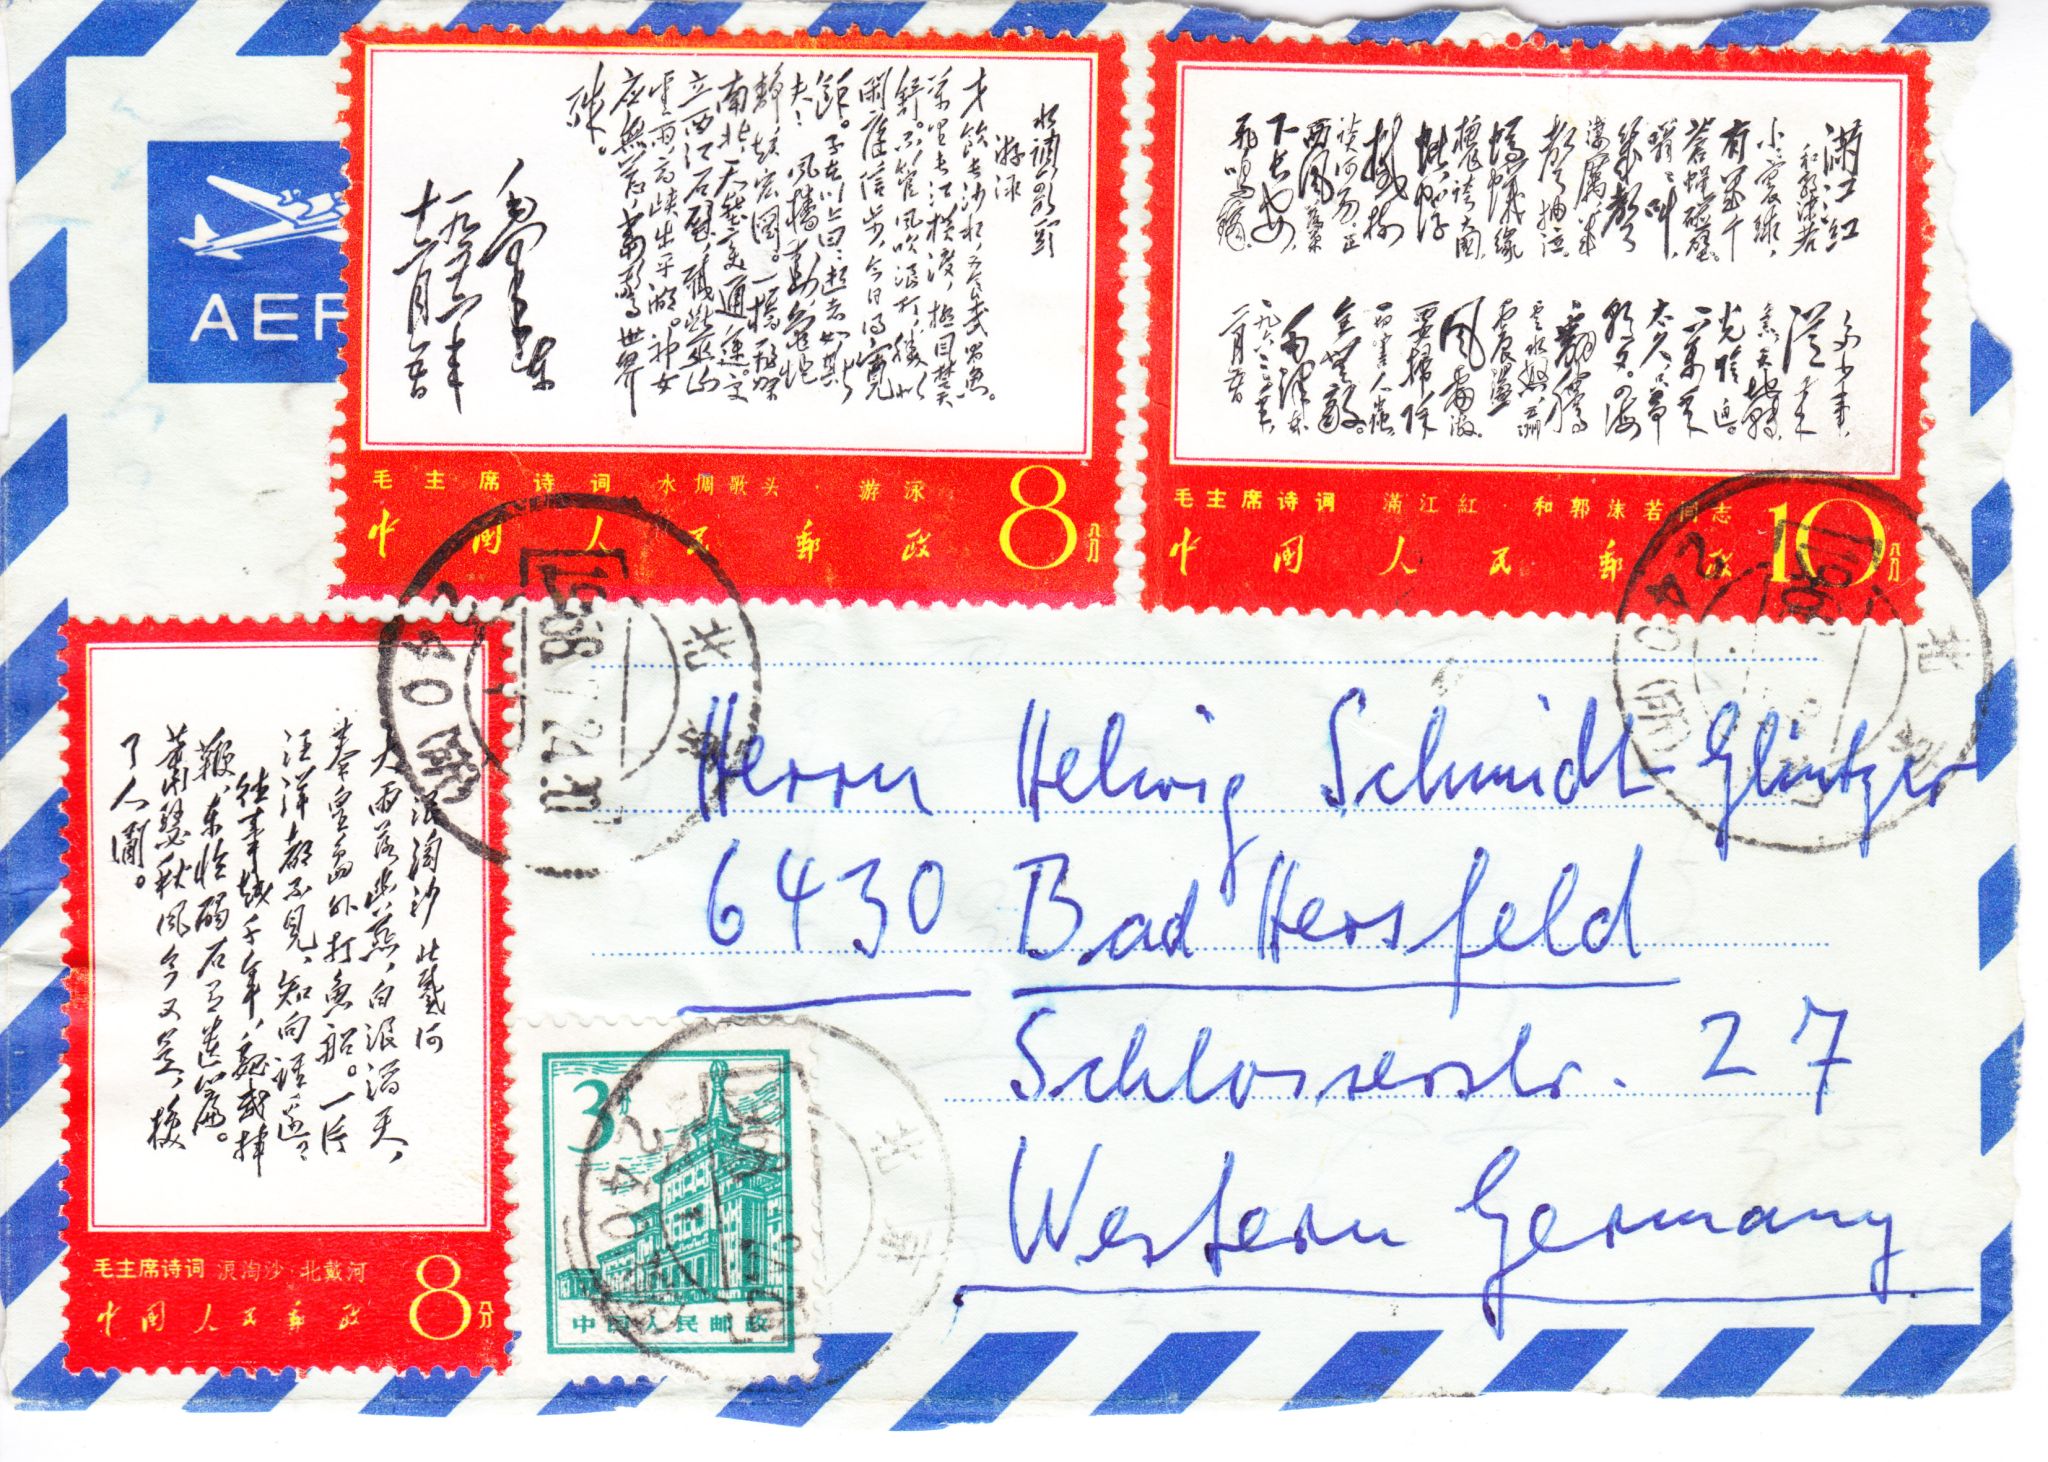 水调歌头
游泳
才饮长沙水,又食武昌鱼。
万里长江横渡,极目楚天
舒。不管风吹浪打,胜似
闲庭信步,今日得宽
馀。子在川上曰:逝者如斯
夫!风樯动,龟蛇
静,起宏图。一桥飞架
南北,天堑变通途。更
立西江石壁,截断巫山
云雨,高峡出平湖。神女
应无恙,当惊世界
殊。
毛泽东
一九五六年
十二月五日
毛主席诗词 水调歌头·游泳
中国人民邮政 8分
满江红
和郭沫若
小小寰球,
有几个
苍蝇碰壁。
嗡嗡叫,
几声
凄厉,几
声抽泣。
蚂蚁缘
槐夸大国,
蚍蜉
撼树
谈何易。正
西风落叶
下长安,
飞鸣镝。
多少事,
从来
急;天地转,
光阴迫。
一万年
太久,只争
朝夕。四海
翻腾
云水怒,五洲
震荡
风雷激。
要扫除
一切害人虫,
全无敌。
毛泽东
一九六三年
毛主席诗词 满江红·和郭沫若同志
中国人民邮政 10分
AER
浪淘沙 北戴河
大雨落幽燕,白浪滔天,
秦皇岛外打鱼船。一片
汪洋都不见,知向谁边?
往事越千年,魏武挥
鞭,东临碣石有遗篇。
萧瑟秋风今又是,换
了人间。
毛主席诗词 浪淘沙·北戴河
中国人民邮政 8分
3分
中国人民邮政
北京
1968.7.24.
北京
北京
Herrn Helwig Schmidt-Glintzer
6430 Bad Hersfeld
Schlosserstr. 27
Western Germany